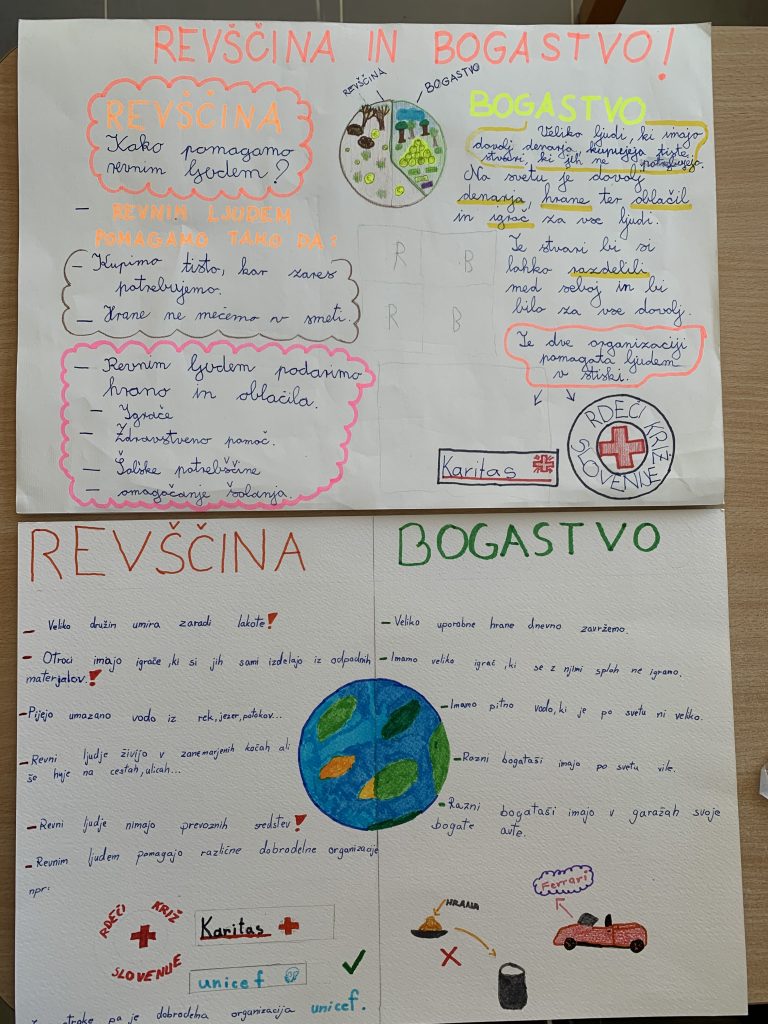 REVŠČINA IN BOGASTVO!
REVŠČINA
Kako pomagamo
revnim ljudem?
REVŠČINA
BOGASTVO
- REVNIM LJUDEM
POMAGAMO TAKO DA:
- Kupimo tisto, kar zares
potrebujemo.
- Hrane ne mečemo v smeti.
- Revnim ljudem podarimo
hrano in oblačila.
- Igrače
- Zdravstveno pomoč.
- Šolske potrebščine
- omogočanje šolanja.
BOGASTVO
Veliko ljudi, ki imajo
dovolj denarja, kupujejo tiste
stvari, ki jih ne potrebujejo.
Na svetu je dovolj
denarja, hrane ter oblačil
in igrač za vse ljudi.
Te stvari bi si
lahko razdelili
med seboj in bi
bilo za vse dovolj.
Te dve organizaciji
pomagata ljudem
v stiski.
R B
R B
Karitas
RDEČI KRIŽ
SLOVENIJE
REVŠČINA
- Veliko družin umira zaradi lakote!
- Otroci imajo igrače, ki si jih sami izdelajo iz odpadnih
materjalov.!
- Pijejo umazano vodo iz rek, jezer, potokov...
- Revni ljudje živijo v zanemarjenih kočah ali
še huje na cestah, ulicah...
- Revni ljudje nimajo prevoznih sredstev!
- Revnim ljudem pomagajo različne dobrodelne organizacije
npr:
RDEČI KRIŽ
SLOVENIJE
Karitas
unicef
otroke pa je dobrodelna organizacija unicef.
BOGASTVO
- Veliko uporobne hrane dnevno zavržemo.
- Imamo veliko igrač, ki se z njimi sploh ne igramo.
- Imamo pitno vodo, ki je po svetu ni veliko.
- Razni bogataši imajo po svetu vile.
- Razni bogataši imajo v garažah svoje
bogate avte.
HRANA
Ferrari